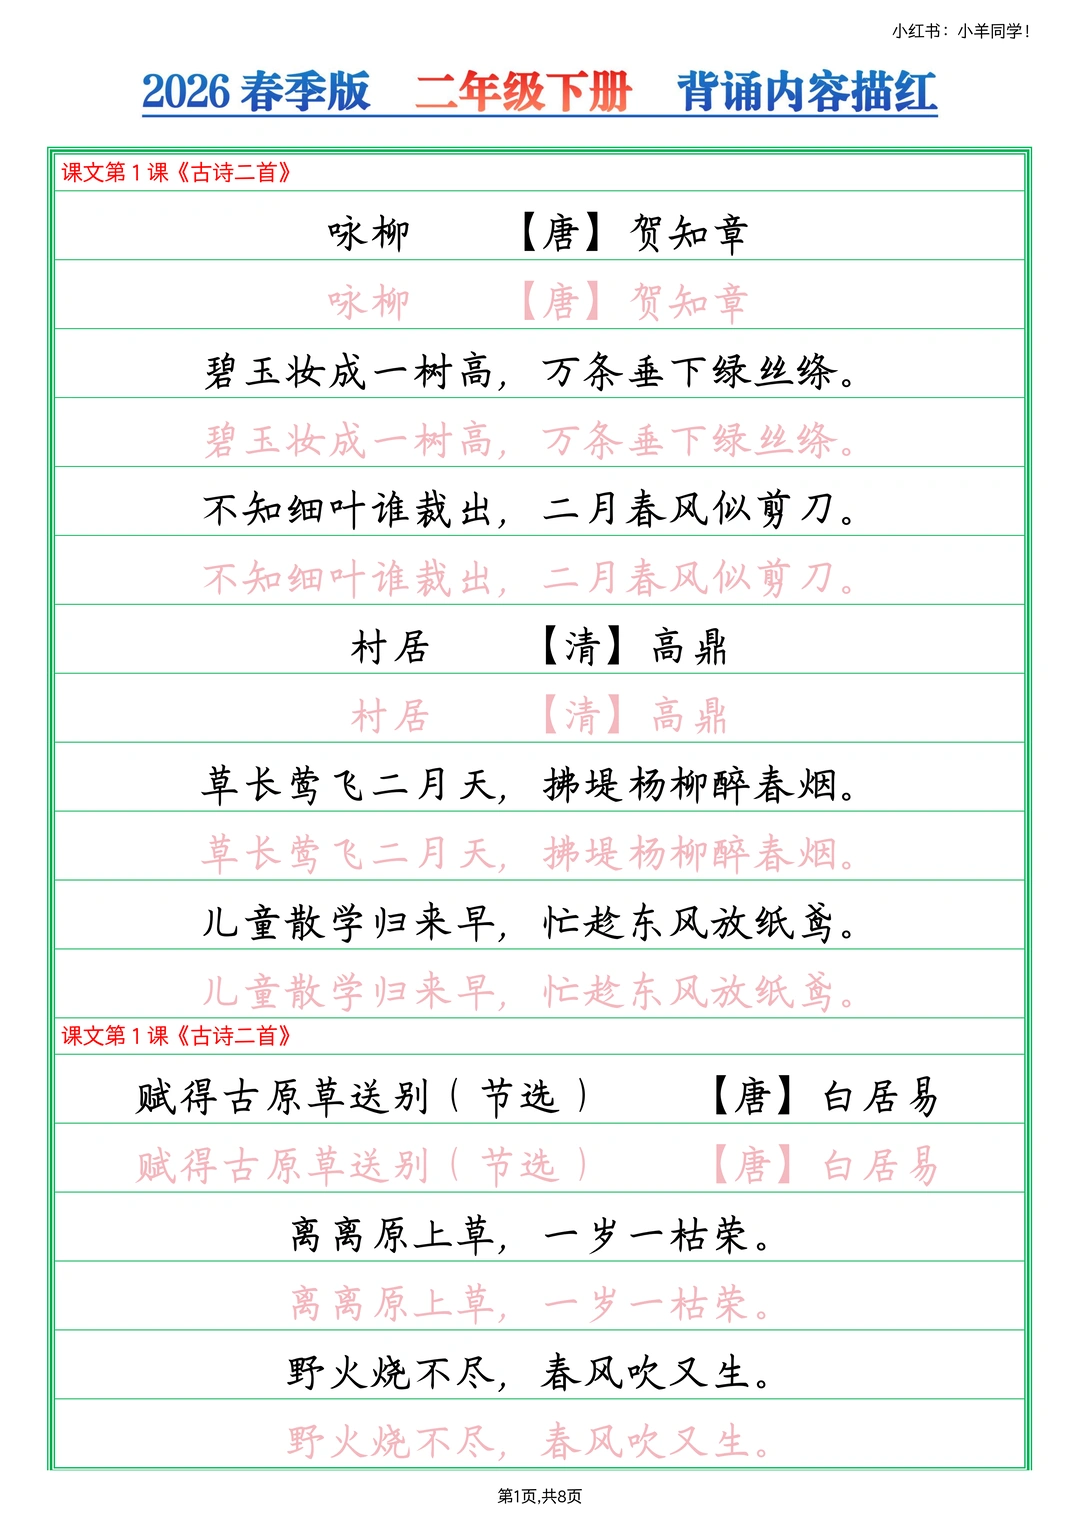 小红书：小羊同学！
2026 春季版 二年级下册 背诵内容描红
课文第 1 课《古诗二首》
咏柳 【唐】贺知章
咏柳 【唐】贺知章
碧玉妆成一树高，万条垂下绿丝绦。
碧玉妆成一树高，万条垂下绿丝绦。
不知细叶谁裁出，二月春风似剪刀。
不知细叶谁裁出，二月春风似剪刀。
村居 【清】高鼎
村居 【清】高鼎
草长莺飞二月天，拂堤杨柳醉春烟。
草长莺飞二月天，拂堤杨柳醉春烟。
儿童散学归来早，忙趁东风放纸鸢。
儿童散学归来早，忙趁东风放纸鸢。
课文第 1 课《古诗二首》
赋得古原草送别（节选） 【唐】白居易
赋得古原草送别（节选） 【唐】白居易
离离原上草，一岁一枯荣。
离离原上草，一岁一枯荣。
野火烧不尽，春风吹又生。
野火烧不尽，春风吹又生。
第1页,共8页